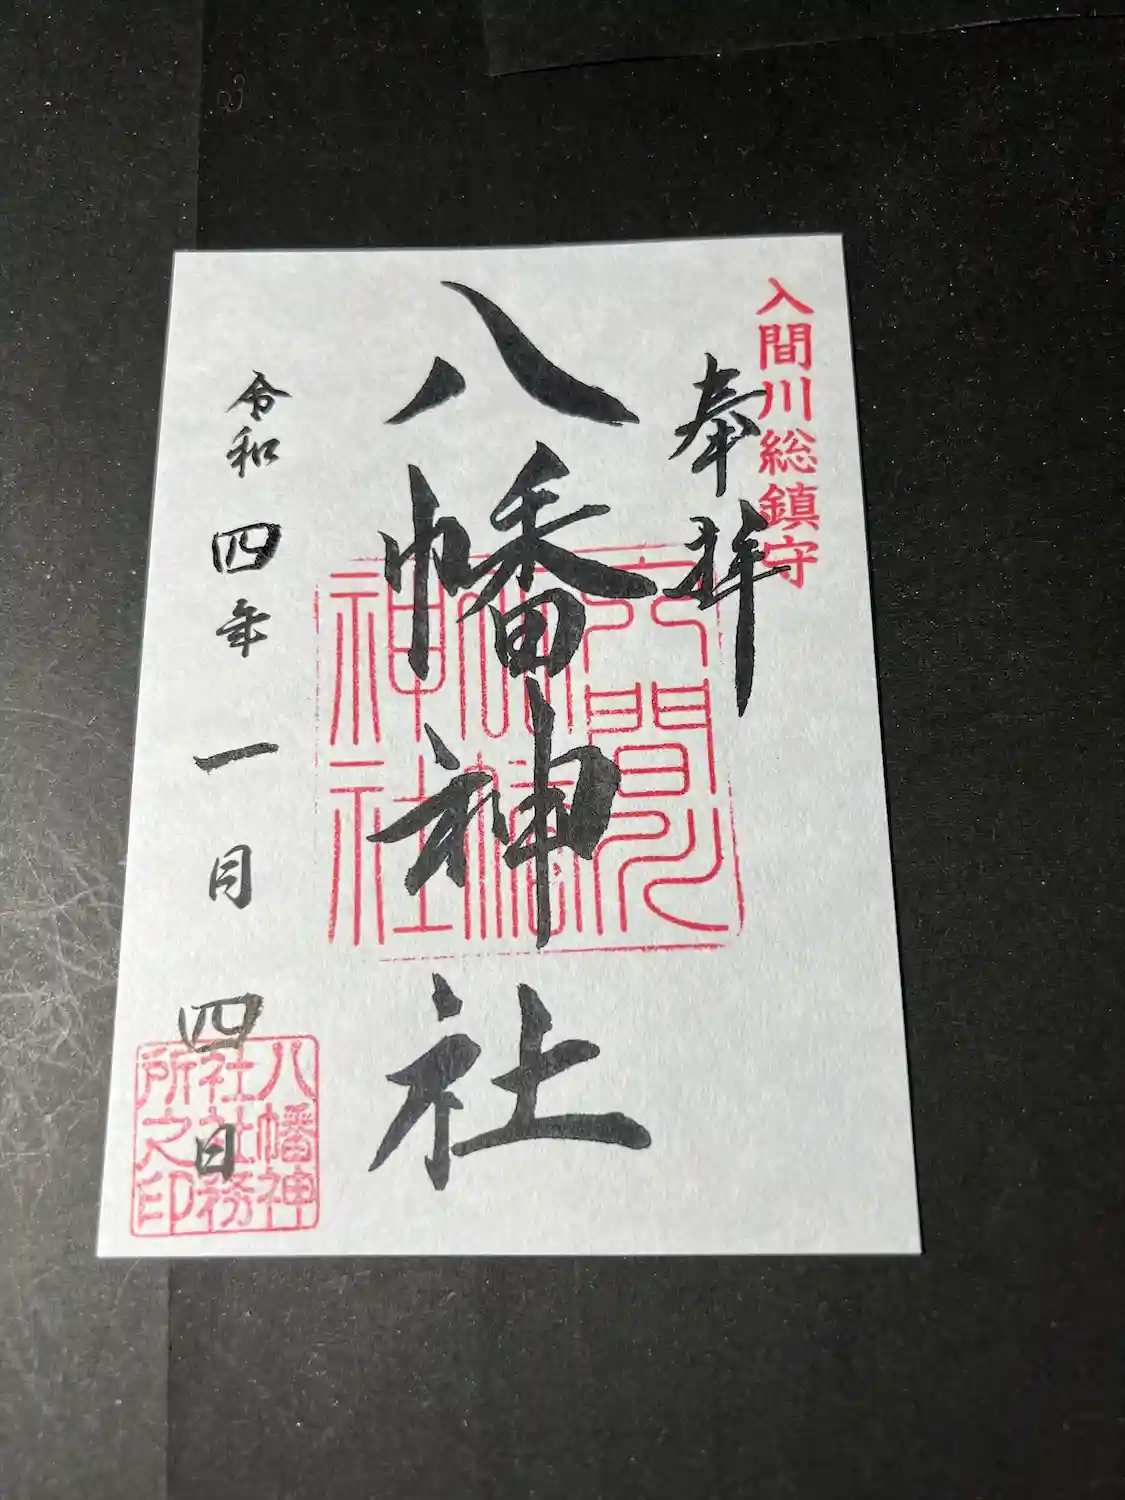 入間川総鎮守
奉拝
八幡神社
入間川
八幡
神社
令和四年一月四日
八幡神
社社務
所之印